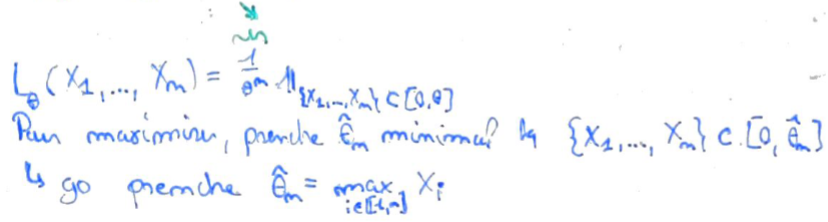 L_θ(X_1, ..., X_n) = 1/θ^n 𝟙_{{X_1, ..., X_n} ⊂ [0, θ]}
Pour maximiser, prendre θ̂_n minimal tq {X_1, ..., X_n} ⊂ [0, θ̂_n]
↳ go prendre θ̂_n = max_{i∈⟦1,n⟧} X_i